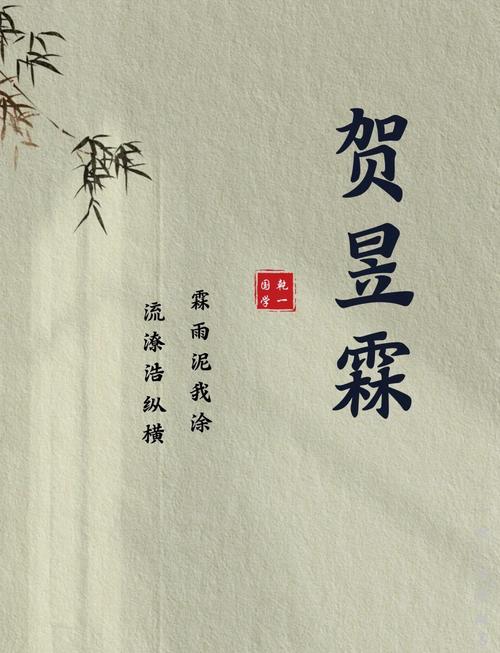 贺昱霖
乾一
国学
霖雨泥我涂
流潦浩纵横